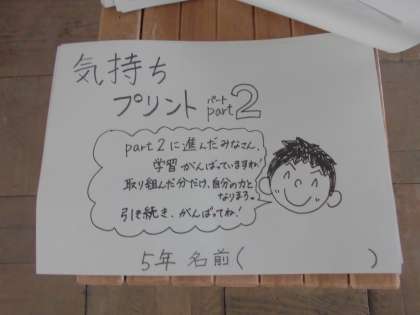 気持ち
プリント パート part2
part2に進んだみなさん、
学習がんばっていますね!
取り組んだ分だけ、自分の力と
なりまする。
引き続き、がんばってね!
5年 名前( )